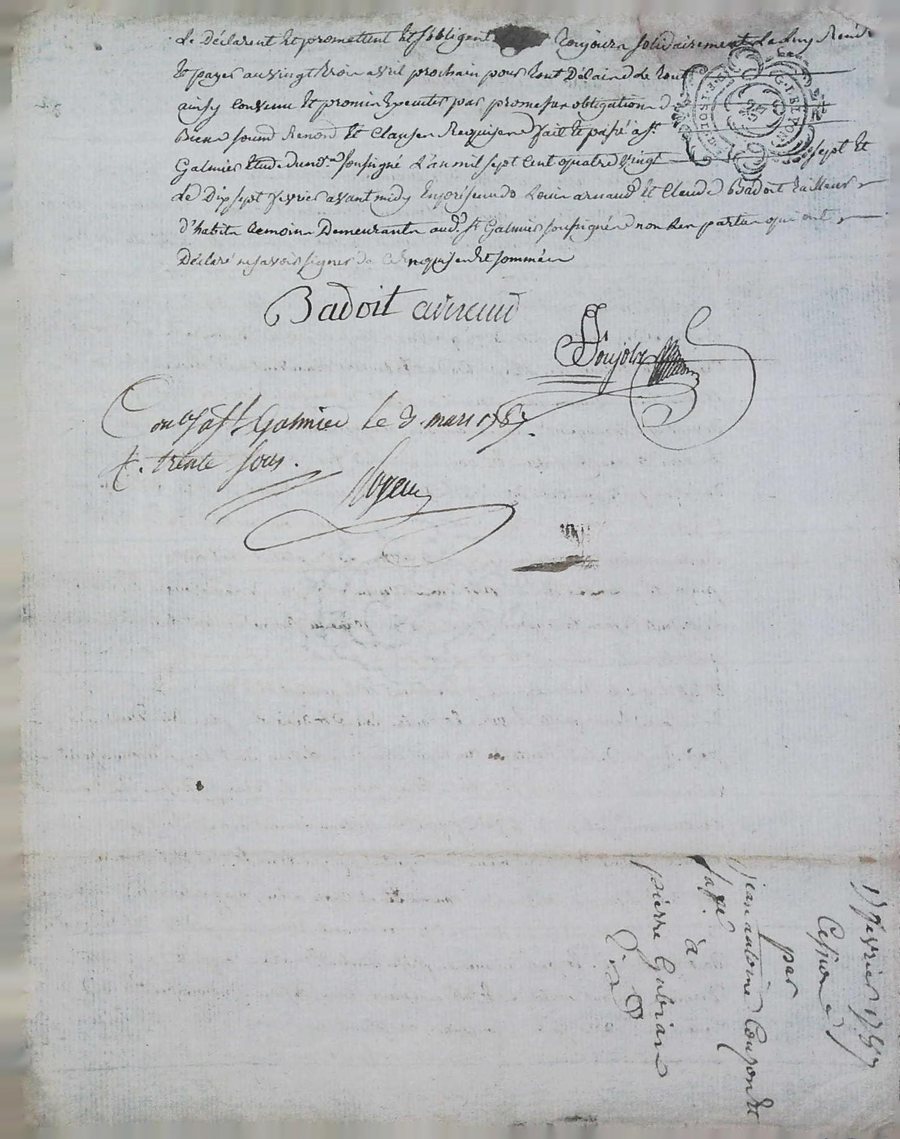 Le Déclarent Et promettent Et sobligent toujours solidairement
Et payer au vingt trois avril prochain pour tout Délai de tout
ainsy Convenu Et promis Executer par promesse obligation de
Biens soumis Renond Et Clauses Requises fait Et passé à St
Galmier Etude du nore soussigné L'an mil sept Cent quatre vingt sept Et
Le Dix sept fevrier avant midy En presence de Louis arnaud Et Claude Badoit tailleurs
d'habits temoins Demeurants aud. St Galmier soussignés non Les parties qui ont
Déclaré ne savoir signer de Ce Enquises Et sommées
Badoit arnaud
Conlé à St Galmier Le 3 mars 1787.
R. trente sous.
17 février 1787
Cession
par
jean antoine Coupon Et
sa
à
pierre Gabrian